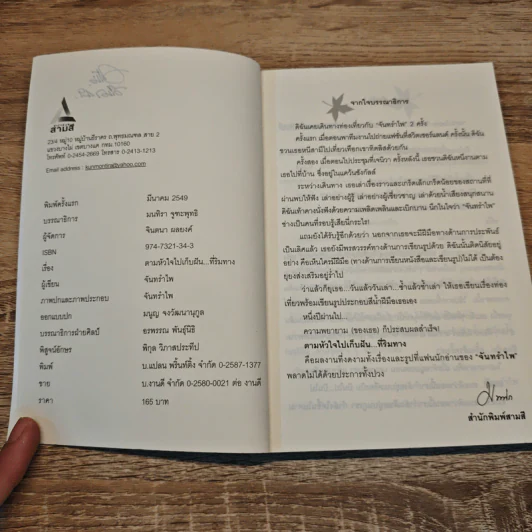 สามสี
23/4 หมู่10 หมู่บ้านธีราดร ถ.พุทธมณฑล สาย 2
แขวงบางไผ่ เขตบางแค กทม 10160
โทรศัพท์ 0-2454-2669 โทรสาร 0-2413-1213
Email address :
พิมพ์ครั้งแรก มีนาคม 2549
บรรณาธิการ มนทิรา จูฑะพุทธิ
ผู้จัดการ จินตนา ผลยงค์
ISBN 974-7321-34-3
เรื่อง ตามหัวใจไปเก็บฝัน...ที่ริมทาง
ผู้เขียน จันทรำไพ
ภาพปกและภาพประกอบ จันทรำไพ
ออกแบบปก มนูญ จงวัฒนานุกูล
บรรณาธิการฝ่ายศิลป์ อรพรรณ พันธุ์นิธิ
พิสูจน์อักษร พิกุล วิภาสประทีป
พิมพ์ บ.แปลน พริ้นท์ติ้ง จำกัด 0-2587-1377
ขาย บ.งานดี จำกัด 0-2580-0021 ต่อ งานดี
ราคา 165 บาท
จากใจบรรณาธิการ
ดิฉันเคยเดินทางท่องเที่ยวกับ "จันทรำไพ" 3 ครั้ง
ครั้งแรก เมื่อตอนพาทีมงานไปถ่ายแฟชั่นที่สวิตเซอร์แลนด์ ครั้งนั้น ดิฉัน
ชวนเธอหนีสามีไปเที่ยวเทือกเขาทิตลิสด้วยกัน
ครั้งสอง เมื่อตอนไปประชุมที่เจนีวา ครั้งหลังนี้ เธอชวนดิฉันหนีงานตาม
เธอไปที่บ้าน ซึ่งอยู่ในแคว้นซังกัลล์
ระหว่างเดินทาง เธอเล่าเรื่องราวและเกร็ดเล็กเกร็ดน้อยของสถานที่ที่
ผ่านพบให้ฟัง เล่าอย่างผู้รู้ เล่าอย่างผู้เชี่ยวชาญ เล่าด้วยน้ำเสียงสนุกสนาน
ดิฉันเท้าคางนั่งฟังด้วยความเพลิดเพลินและเบิกบาน นึกในใจว่า "จันทรำไพ"
ช่างเป็นคนที่รอบรู้เสียนี่กระไร!
แถมยังได้รับรู้อีกด้วยว่า นอกจากเธอจะมีฝีมือทางด้านการประพันธ์
เป็นเลิศแล้ว เธอยังมีพรสวรรค์ทางด้านการเขียนรูปด้วย ดิฉันนั้นติดนิสัยอยู่
อย่าง คือเห็นใครมีฝีมือ (ทางด้านการเขียนหนังสือและเขียนรูป)ไม่ได้ เป็นต้อง
ยุยงส่งเสริมอยู่ร่ำไป
ว่าแล้วก็ยุเธอ...วันแล้ววันเล่า...ซ้ำแล้วซ้ำเล่า ให้เธอเขียนเรื่องท่อง
เที่ยวพร้อมเขียนรูปประกอบสีน้ำฝีมือเธอเอง
หนึ่งปีผ่านไป...
ความพยายาม (ของเธอ) ก็ประสบผลสำเร็จ!
ตามหัวใจไปเก็บฝัน...ที่ริมทาง
คือผลงานที่งดงามทั้งเรื่องและรูปที่แฟนนักอ่านของ "จันทรำไพ"
พลาดไม่ได้ด้วยประการทั้งปวง
สำนักพิมพ์สามสี